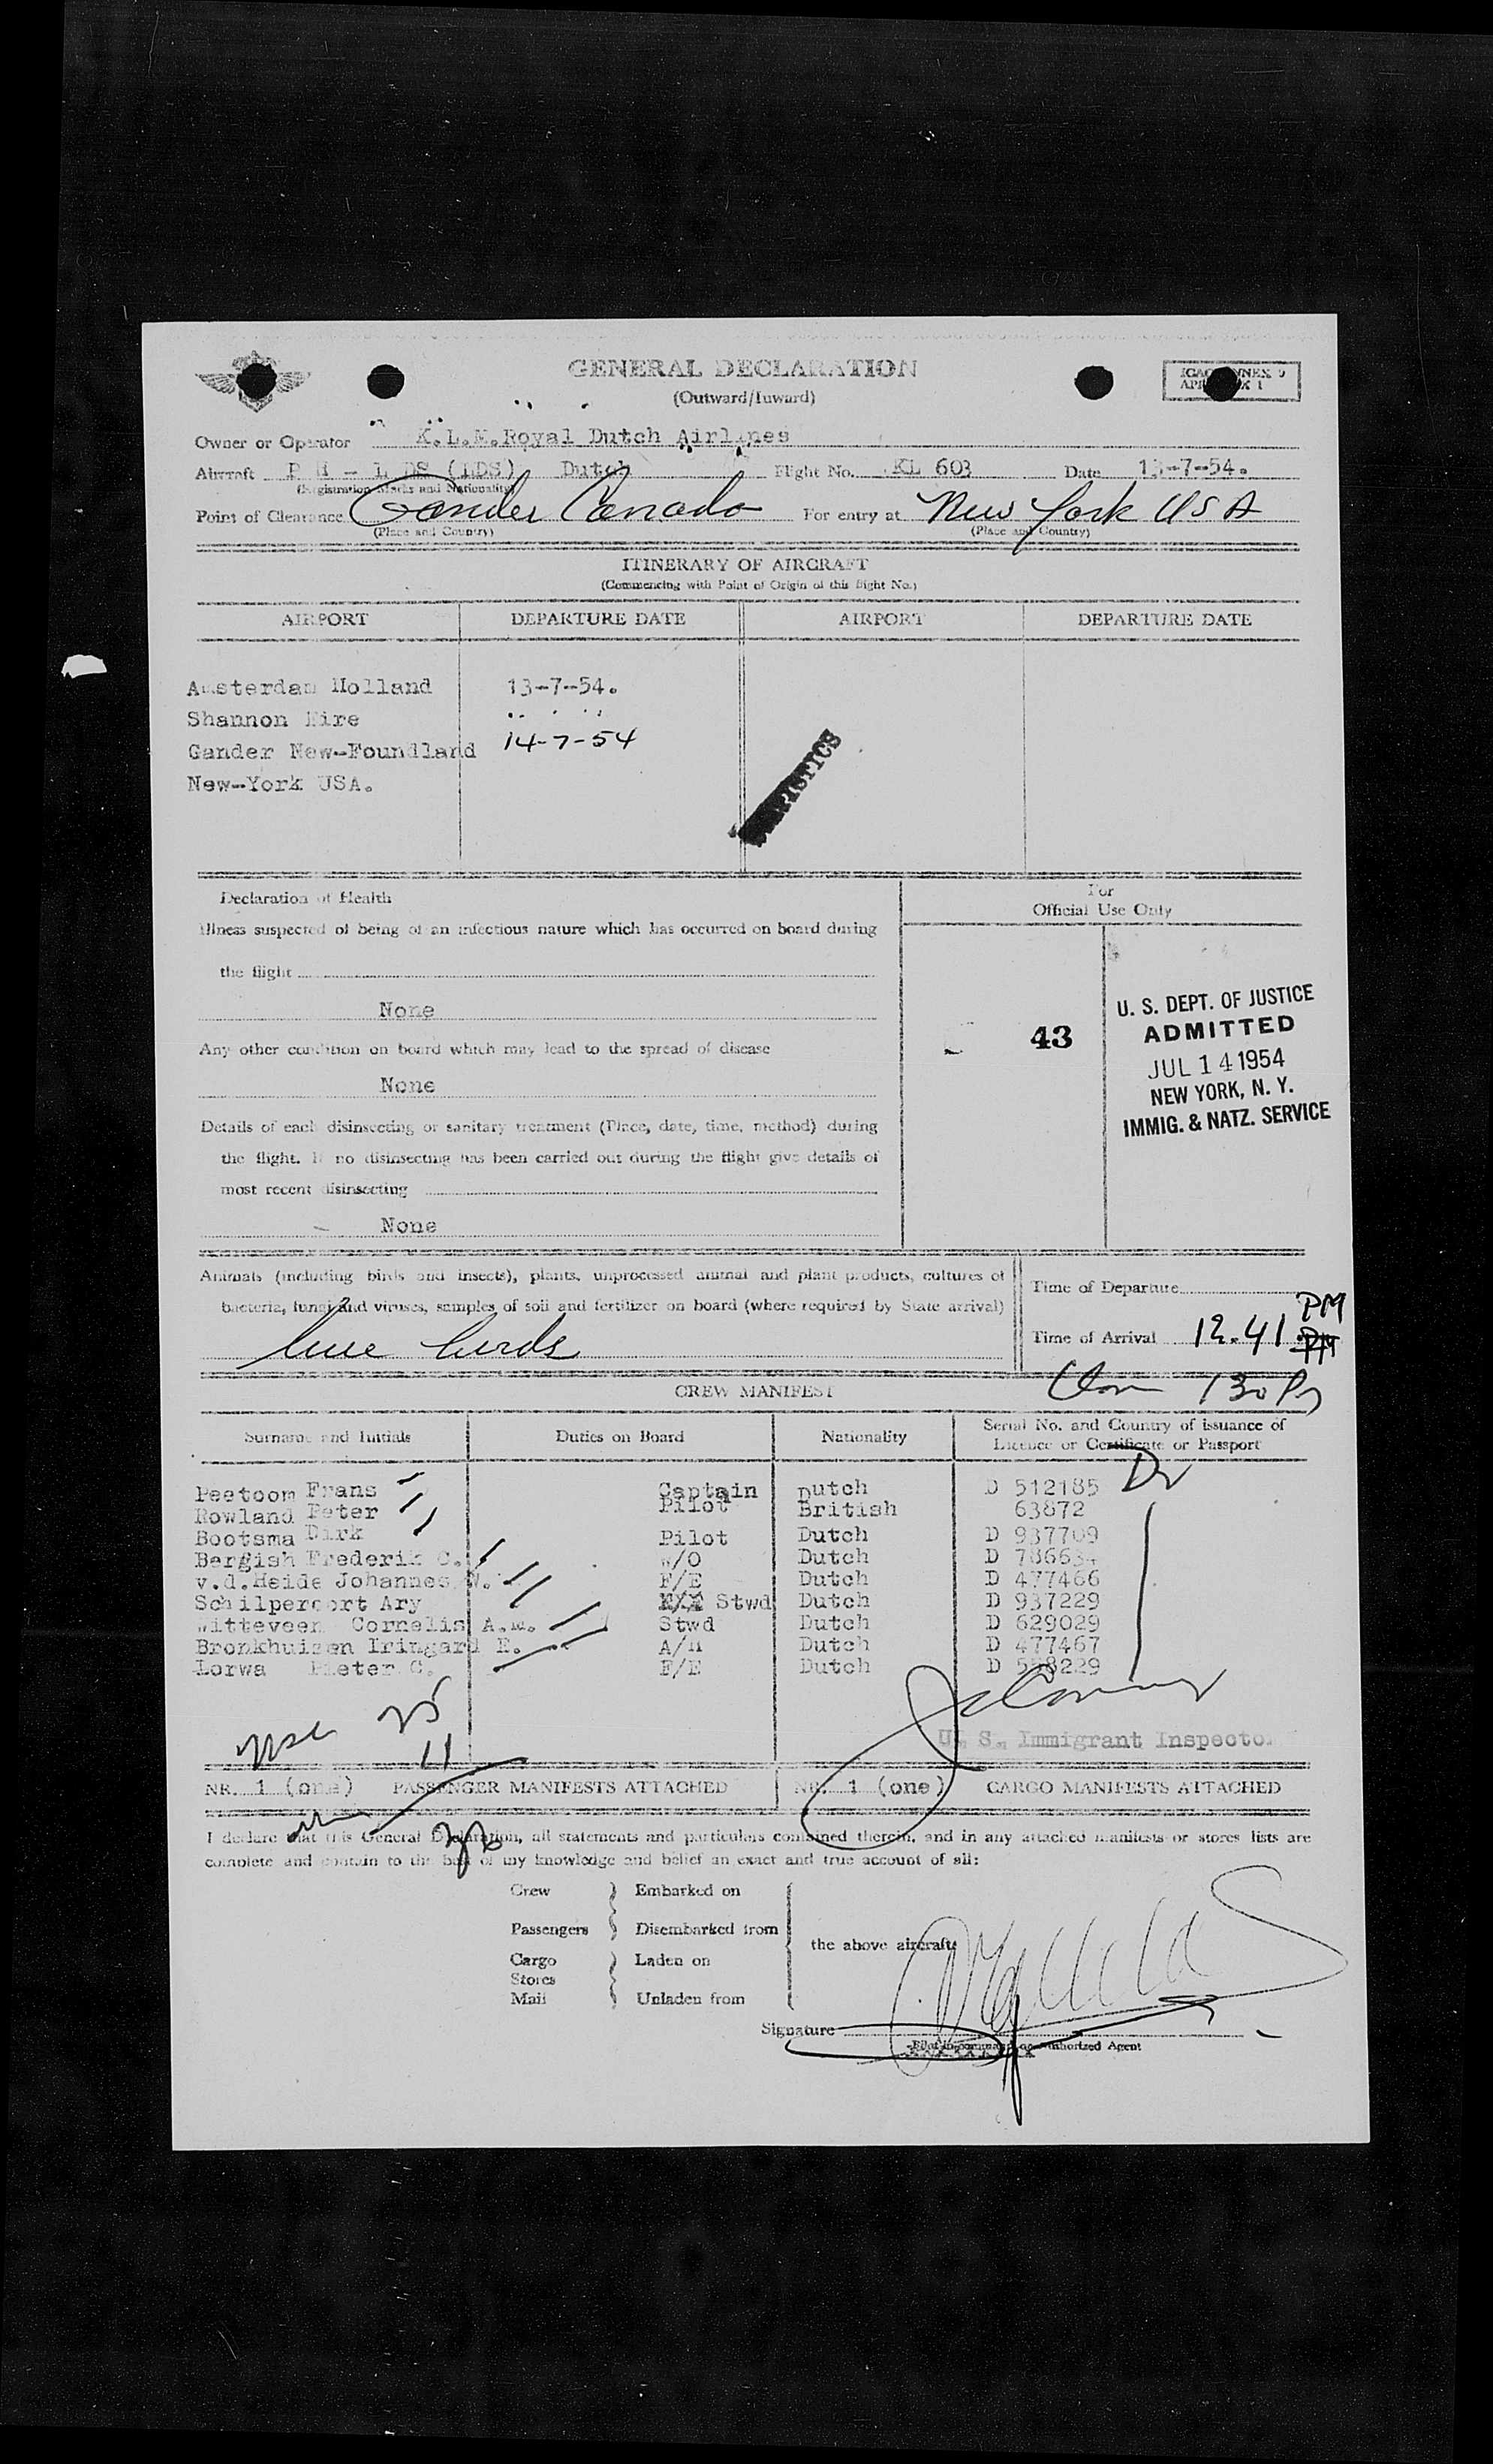 GENERAL DECLARATION
(Outward/Inward)
Owner or Operator K.L.M. Royal Dutch Airlines
Aircraft Dutch Flight No. KL 603 Date 13-7-54.
(Registration Marks and Nationality)
Point of Clearance Gander Canada For entry at New York USA
(Place and Country) (Place and Country)
ITINERARY OF AIRCRAFT
(Commencing with Point of Origin of this flight No.)
AIRPORT DEPARTURE DATE AIRPORT DEPARTURE DATE
Amsterdam Holland 13-7-54.
Shannon Eire
Gander New-Foundland 14-7-54
New-York USA.
Declaration of Health
For
Official Use Only
Illness suspected of being of an infectious nature which has occurred on board during
the flight
None
Any other condition on board which may lead to the spread of disease
None
Details of each disinsecting or sanitary treatment (Place, date, time, method) during
the flight. If no disinsecting has been carried out during the flight give details of
most recent disinsecting
None
43
U. S. DEPT. OF JUSTICE
ADMITTED
JUL 14 1954
NEW YORK, N. Y.
IMMIG. & NATZ. SERVICE
Animals (including birds and insects), plants, unprocessed animal and plant products, cultures of
bacteria, fungi and viruses, samples of soil and fertilizer on board (where required by State arrival)
live birds
Time of Departure
Time of Arrival 12.41 PM
130 P
CREW MANIFEST
Surname and Initials Duties on Board Nationality Serial No. and Country of issuance of
Licence or Certificate or Passport
Peetoom Frans Captain Dutch D 512185
Rowland Peter Pilot British 63872
Bootsma Dirk Pilot Dutch D 937709
Bergish Frederik C. W/O Dutch D
v.d.Heide Johannes W. F/E Dutch D 477466
Schilperoort Ary Stwd Dutch D 937229
Witteveen Cornelis A.M. Stwd Dutch D 629029
Bronkhuizen Iringard E. A/H Dutch D 477467
Lorwa Pieter C. F/E Dutch D
25
11
U. S. Immigrant Inspector
NR. 1 (one) PASSENGER MANIFESTS ATTACHED NR. 1 (one) CARGO MANIFESTS ATTACHED
I declare that this General Declaration, all statements and particulars contained therein, and in any attached manifests or stores lists are
complete and contain to the best of my knowledge and belief an exact and true account of all:
Crew Embarked on
Passengers Disembarked from
the above aircraft.
Cargo Laden on
Stores
Mail Unladen from
Signature
Pilot in command or Authorized Agent